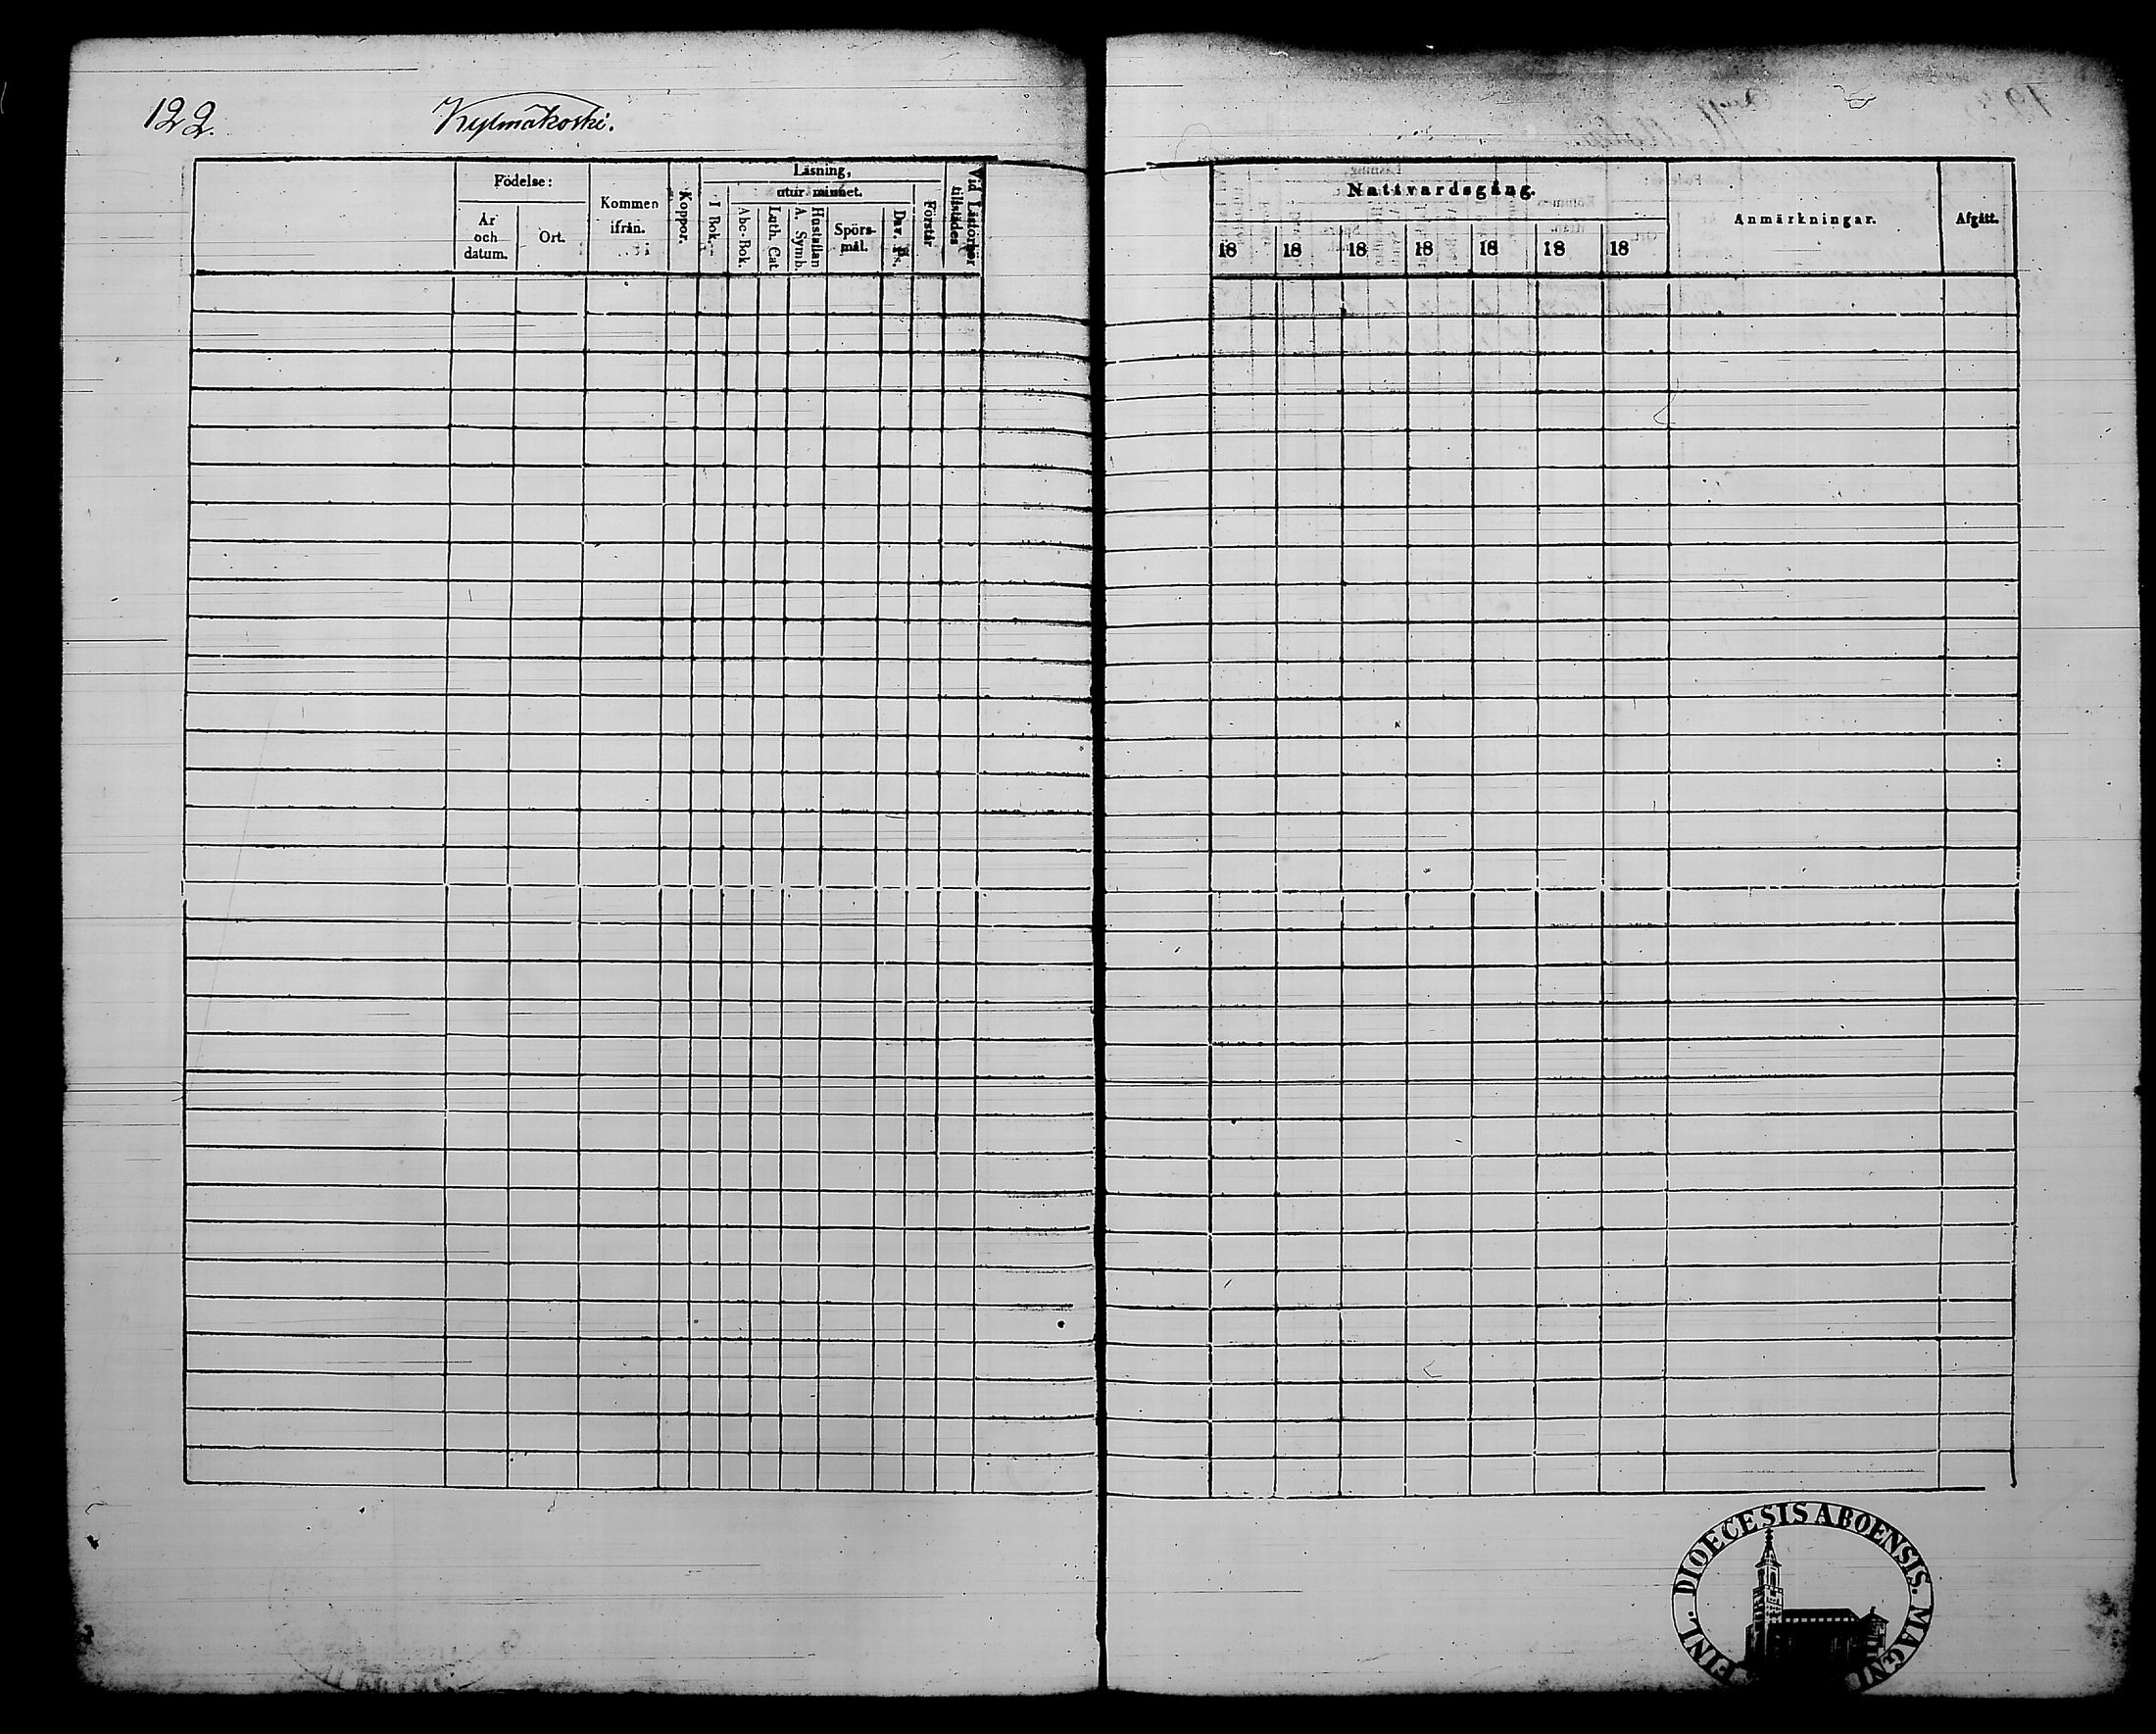 122.
Kylmäkoski.
Födelse:
År och datum.
Ort.
Kommen ifrån.
Koppor.
Läsning,
I Bok.
utur minnet.
Abc-Bok.
Luth. Cat.
Hustaflan A. Symb.
Spörs-
mål.
Dav. Ps.
Förstår
Vid Läsförhör tillstädes
Nattvardsgång.
18 18 18 18 18 18 18
Anmärkningar.
Afgått.
FINL. DIOECESIS ABOENSIS. MAGNI